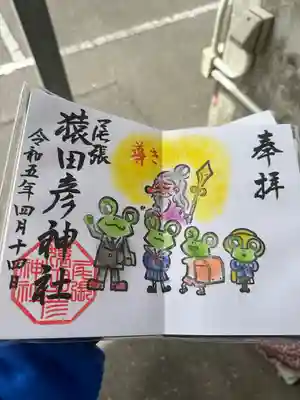 奉拝
尊き
尾張
猿田彦神社
令和五年四月十四日
尾張
猿田彦
神社